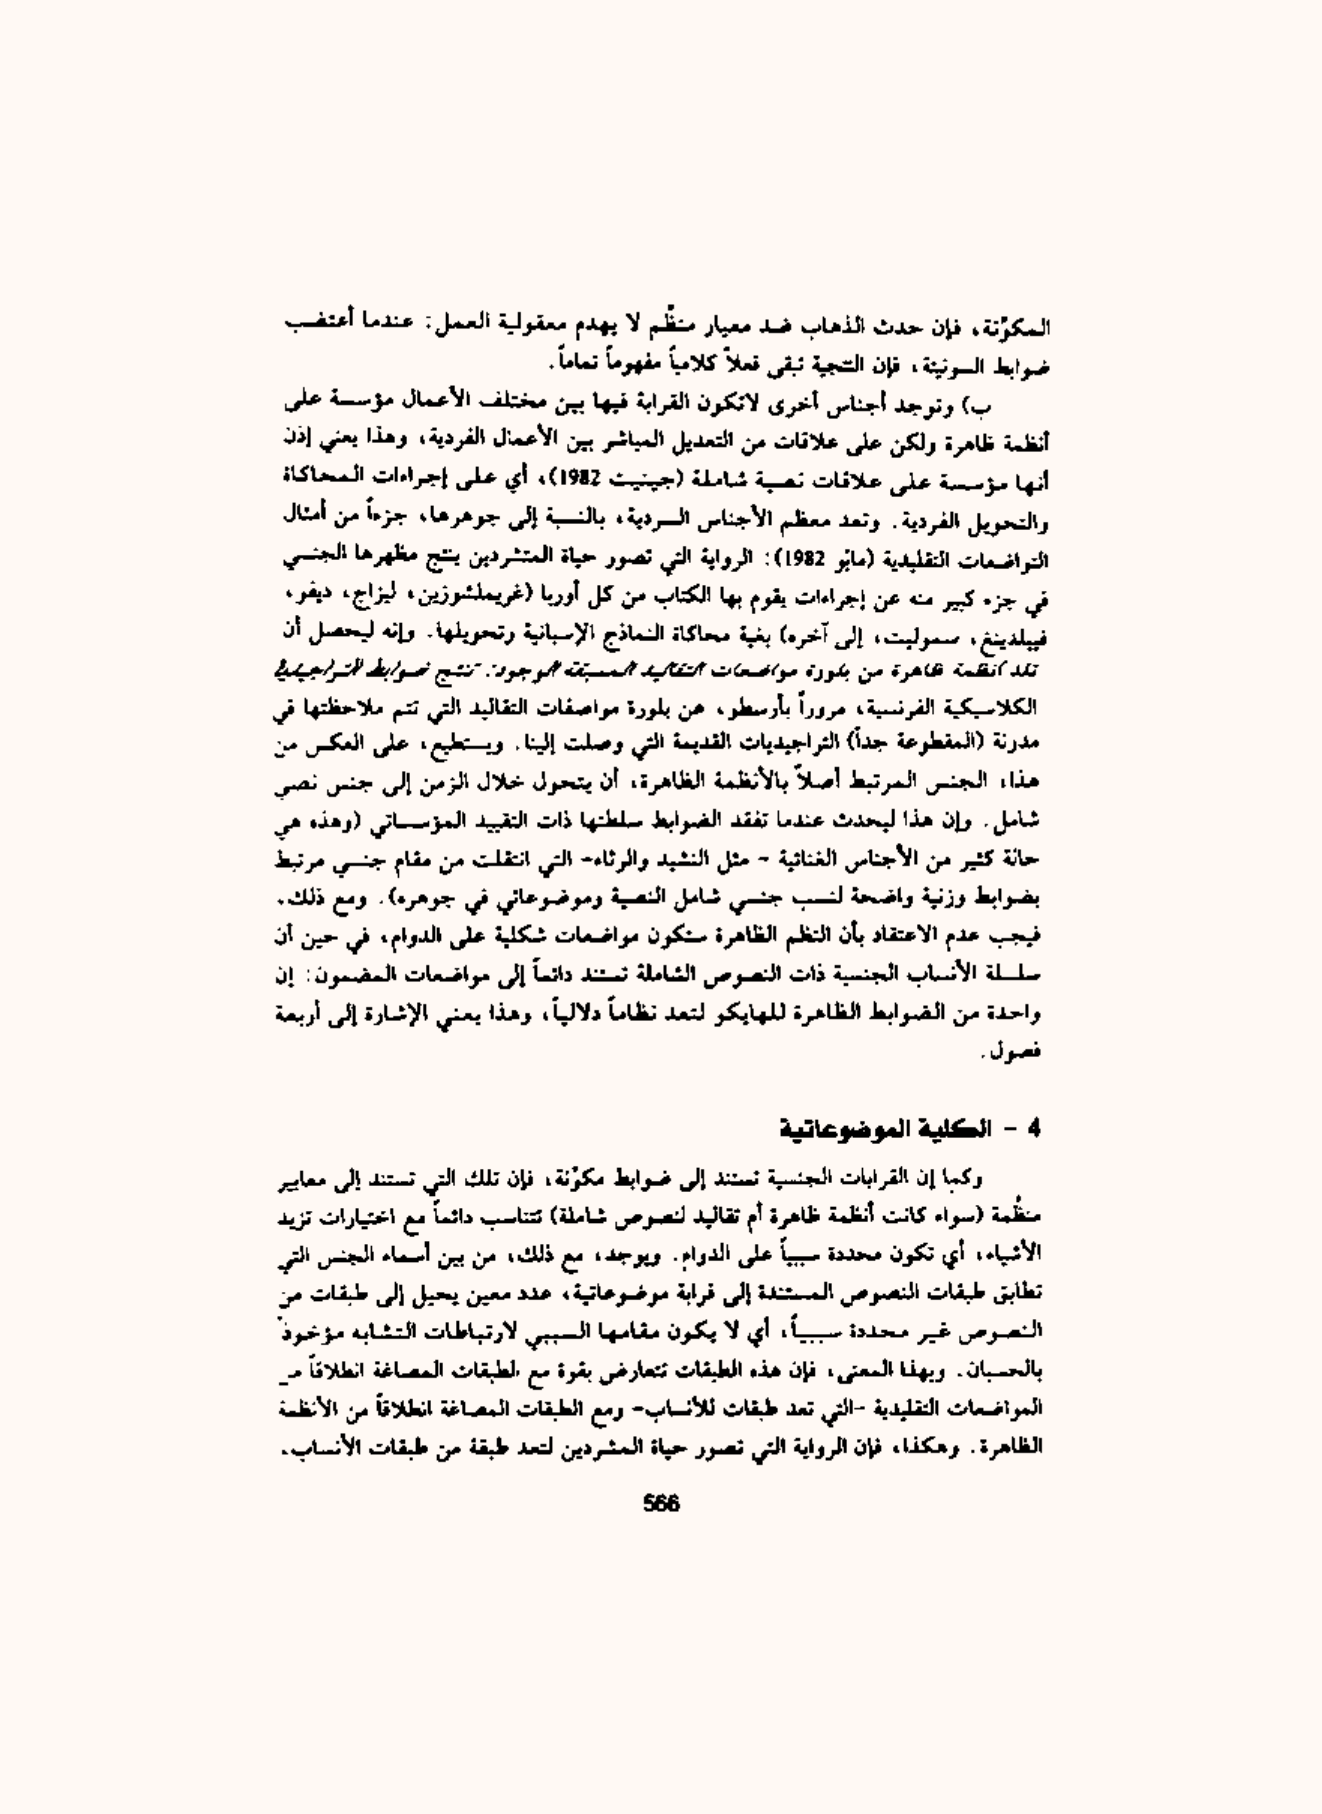 المكوِّنة، فإن حدث الذهاب ضد معيار منظِّم لا يهدم معقولية العمل: عندما أغتضب
ضوابط السونيتة، فإن النتجية تبقى فعلاً كلامياً مفهوماً تماماً.
ب) وتوجد أجناس أخرى لاتكون القرابة فيها بين مختلف الأعمال مؤسسة على
أنظمة ظاهرة ولكن على علاقات من التعديل المباشر بين الأعمال الفردية، وهذا يعني إذن
أنها مؤسسة على علاقات نصية شاملة (جينيت 1982)، أي على إجراءات المحاكاة
والتحويل الفردية. وتعد معظم الأجناس السردية، بالنسبة إلى جوهرها، جزءاً من أمثال
التواضعات التقليدية (مايو 1982): الرواية التي تصور حياة المتشردين ينتج مظهرها الجنسي
في جزء كبير منه عن إجراءات يقوم بها الكتاب من كل أوربا (غريملشوزين، ليزاج، ديفو،
فييلدينغ، سموليت، إلى آخره) بغية محاكاة النماذج الإسبانية وتحويلها. وإنه ليحصل أن
تلد أنظمة ظاهرة من بلورة مواضعات التقاليد المسبقة الوجود: تنتج ضوابط التراجيديا
الكلاسيكية الفرنسية، مروراً بأرسطو، عن بلورة مواصفات التقاليد التي تتم ملاحظتها في
مدونة (المقطوعة جداً) التراجيديات القديمة التي وصلت إلينا. ويستطيع، على العكس من
هذا، الجنس المرتبط أصلاً بالأنظمة الظاهرة، أن يتحول خلال الزمن إلى جنس نصي
شامل. وإن هذا ليحدث عندما تفقد الضوابط سلطتها ذات التقييد المؤسساتي (وهذه هي
حالة كثير من الأجناس الغنائية - مثل النشيد والرثاء- التي انتقلت من مقام جنسي مرتبط
بضوابط وزنية واضحة لنسب جنسي شامل النصية وموضوعاتي في جوهره). ومع ذلك،
فيجب عدم الاعتقاد بأن النظم الظاهرة ستكون مواضعات شكلية على الدوام، في حين أن
سلسلة الأنساب الجنسية ذات النصوص الشاملة تستند دائماً إلى مواضعات المضمون: إن
واحدة من الضوابط الظاهرة للهايكو لتعد نظاماً دلالياً، وهذا يعني الإشارة إلى أربعة
فصول.
4 - الكلية الموضوعاتية
وكما إن القرابات الجنسية تستند إلى ضوابط مكوِّنة، فإن تلك التي تستند إلى معايير
منظِّمة (سواء كانت أنظمة ظاهرة أم تقاليد لنصوص شاملة) تتناسب دائماً مع اختيارات تزيد
الأشياء، أي تكون محددة سببياً على الدوام. ويوجد، مع ذلك، من بين أسماء الجنس التي
تطابق طبقات النصوص المستندة إلى قرابة موضوعاتية، عدد معين يحيل إلى طبقات من
النصوص غير محددة سببياً، أي لا يكون مقامها السببي لارتباطات التشابه مؤخوذ
بالحسبان. وبهذا المعنى، فإن هذه الطبقات تتعارض بقوة مع الطبقات المصاغة انطلاقاً من
المواضعات التقليدية -التي تعد طبقات للأنساب- ومع الطبقات المصاغة انطلاقاً من الأنظمة
الظاهرة. وهكذا، فإن الرواية التي تصور حياة المشردين لتعد طبقة من طبقات الأنساب،
566